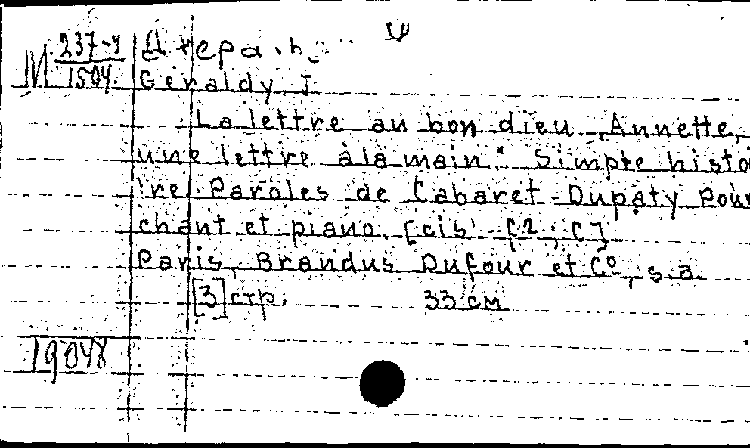 М 237-4
1504.
Géraldy J.
La lettre au bon dieu „Annette,
une lettre à la main." Simple histo
ire. Paroles de Cabaret-Dupaty pour
chant et piano. [cis'
Paris, Brandus Dufour et Cº, s.a.
[3] стр. 33 см